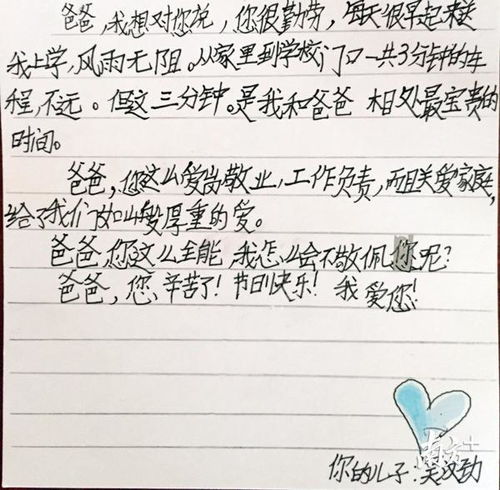 爸爸，我想对您说，您很勤劳，每天很早起来送
我上学，风雨无阻。从家里到学校门口一共3分钟的车
程，不远。但这三分钟。是我和爸爸相处最宝贵的
时间。
爸爸，您这么爱岗敬业，工作负责，而且关爱家庭，
给了我们如山般厚重的爱。
爸爸，您这么全能，我怎么会不敬佩您呢？
爸爸，您辛苦了！节日快乐！我爱您！
南方+
你的儿子：吴汉劲